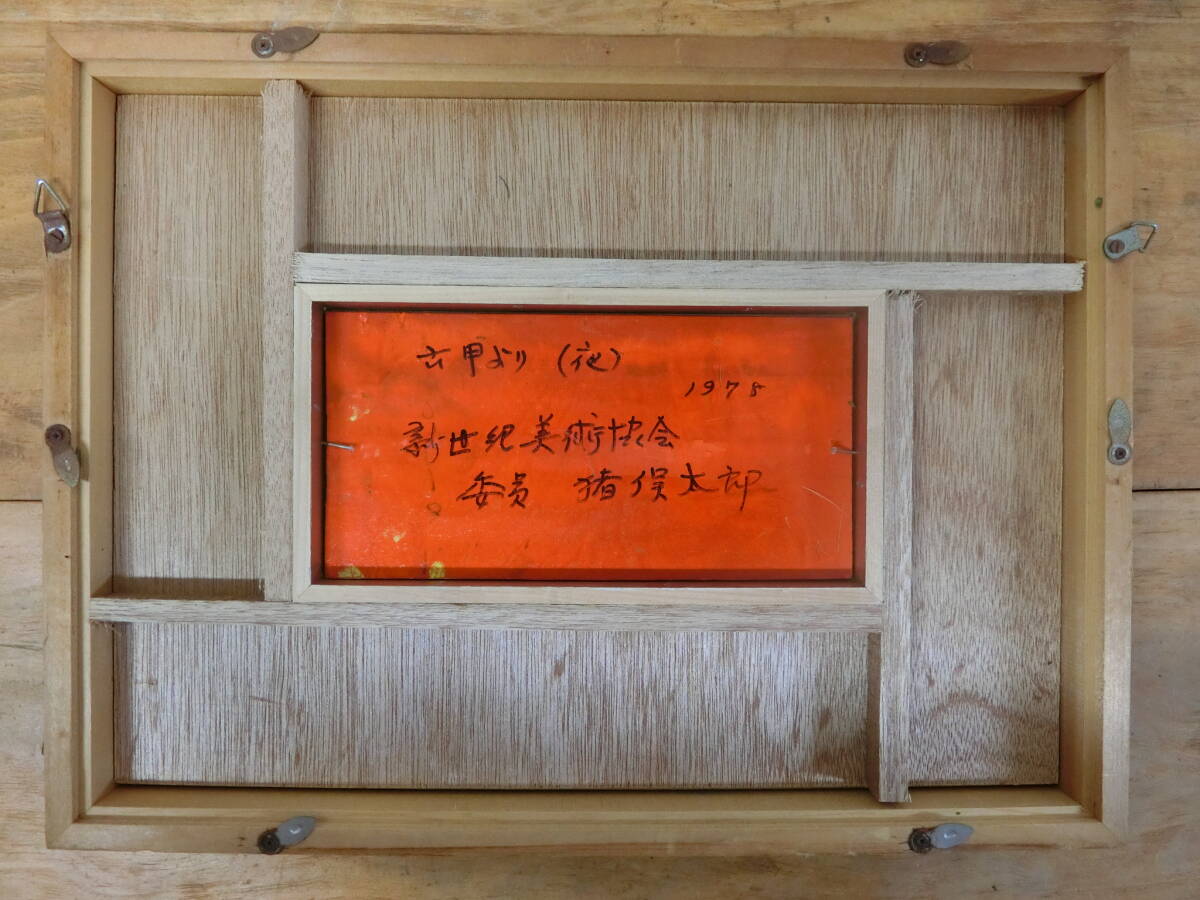 六甲より (夜)
1978
新世紀美術協会
委員 猪俣太郎